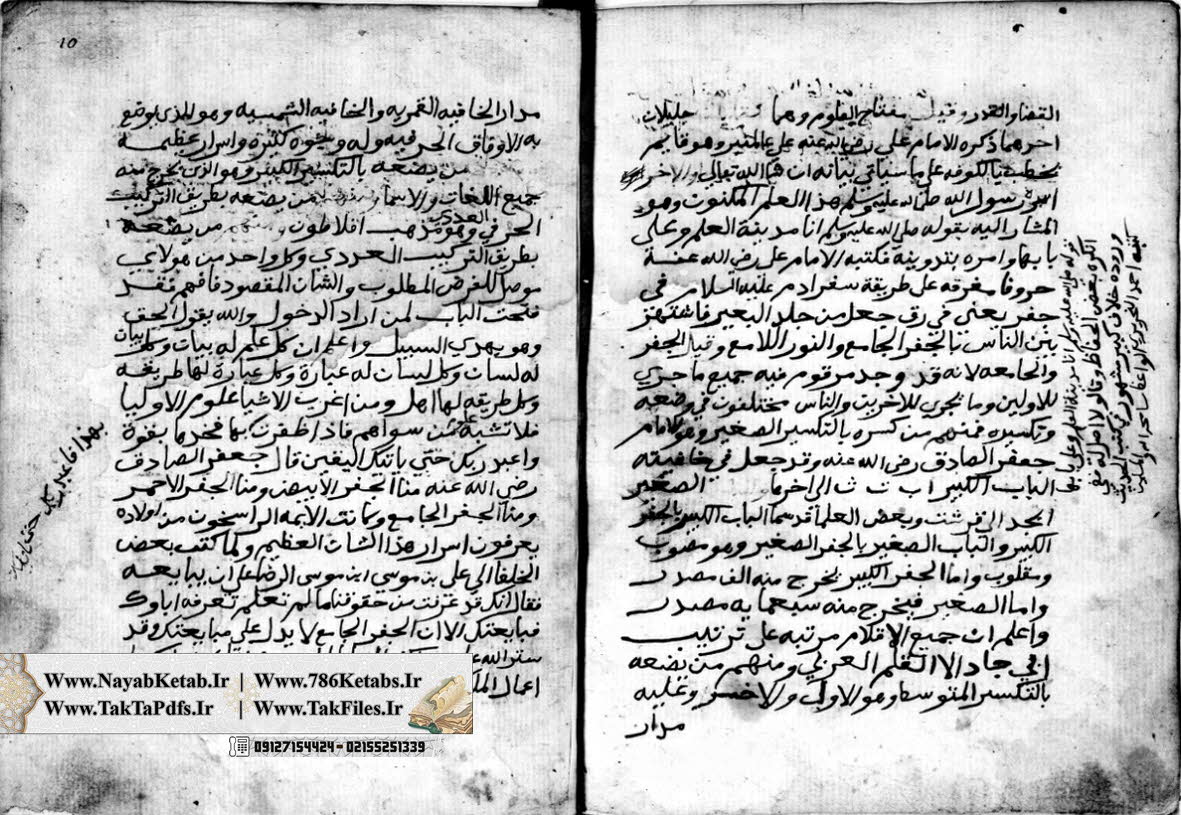 القضا والقدر وقيل مفتاح العلوم وهما كتابان جليلان
احدهما ذكره الامام علي رضي الله عنه على المنبر وهو قايم
يخطب بالكوفه على ما سياتي بيانه ان شا الله تعالى والاخر
اسره رسول الله صلى الله عليه وسلم هذا العلم المكنون وهو
المشار اليه بقوله صلى الله عليه وسلم انا مدينة العلم وعلي
بابها وامره بتدوينه فكتبه الامام علي رضي الله عنه
حروفا مفرقه على طريقة سفر ادم عليه السلام في
جفر يعني في رق جعل من جلد البعير فاشتهر
بين الناس بالجفر الجامع والنور اللامع وقيل الجفر
والجامعه لانه قد وجد مرقوم فيه جميع ما جري
للاولين وما يجري للاخرين والناس مختلفون في وضعه
وتكسيره فمنهم من كسره بالتكسير الصغير وهو الامام
جعفر الصادق رضي الله عنه وقد جعل في خافيته
الباب الكبير ا ب ت ث الى اخرها الصغير
ابجد الى قرشت وبعض العلما قد سما الباب الكبير بالجفر
الكبير والباب الصغير بالجفر الصغير وهو مصوب
ومقلوب واما الجفر الكبير يخرج منه الف مصدر
واما الصغير فيخرج منه سبعمايه مصدر
واعلم ان جميع الاقلام مرتبه على ترتيب
ابي جاد الا القلم العربي ومنهم من يضعه
بالتكسير المتوسط وهو الاولى والاحسن وعليه
مدار
قوله صلى الله عليه وسلم انا مدينة العلم وعلي بابها
انكره بعض الحفاظ وقالوا لا اصل له
وروده خلاف ليس مشهور في كتب الحديث
كتبه احمد
10
مدار الخافيه القمريه والخافيه الشمسيه وهو الذي يوضع
به الاوفاق الحرفيه وله وجوه كثيرة واسرار عظيمه
من يضعه بالتكسير الكبير وهو الذي يخرج منه
جميع اللغات والاسما ومنهم من يضعه بطريق التركيب
الحرفي وهو مذهب افلاطون ومنهم من يضعه
العددي
بطريق التركيب العددي وكل واحد من هولاي
موصل للغرض المطلوب والشان المقصود فافهم فقد
فتحت الباب لمن اراد الدخول والله يقول الحق
وهو يهدي السبيل واعلم ان كل علم له بيان وكل بيان
له لسان وكل لسان له عبارة وكل عبارة لها طريقه
وكل طريقه لها اهل ومن اغرب الاشيا علوم الاوليا
فلا تشبه علم من سواهم فاذا ظفرت بها فخدها بقوة
واعبد ربك حتى ياتيك اليقين قال جعفر الصادق
رضي الله عنه منا الجفر الابيض ومنا الجفر الاحمر
ومنا الجفر الجامع وكانت الايمه الراسخون من اولاده
يعرفون اسرار هذا الشان العظيم ولما كتب بعض
الخلفا الى علي بن موسي ابن موسى الرضا على ان يبايعه
فقال انك قد عرفت من حقوقنا ما لم تعلم تعرفه اباوك
فبايعتك الا ان الجفر الجامع لا يدل على مبايعتك وقد
ستر الله
اعمال
www.NayabKetab.Ir | Www.786Ketabs.Ir
Www.TakTaPdfs.Ir | Www.TakFiles.Ir
09127154424 - 02155251339